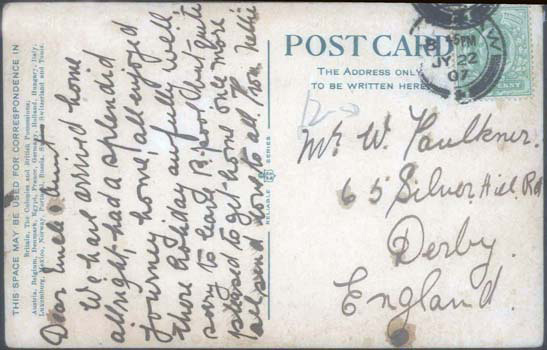 THIS SPACE MAY BE USED FOR CORRESPONDENCE IN
Britain, The Colonies and British Possessions,
Austria, Belgium, Denmark, Egypt, France, Germany, Holland, Hungary, Italy,
Luxemburg, Mexico, Norway, Portugal, Russia, Spain, Switzerland and Tunis.
Dear Uncle & Aunt
We have arrived home
allright, had a splendid
journey home, all enjoyed
there holiday awfully well
sorry to leave B-pool but quite
pleased to get home once more
all send love to all. from Nellie
RELIABLE SERIES
POST CARD
THE ADDRESS ONLY
TO BE WRITTEN HERE
15PM
JY 22
07
PENNY
Mr W. Faulkner.
65 Silver Hill Rd
Derby.
England.